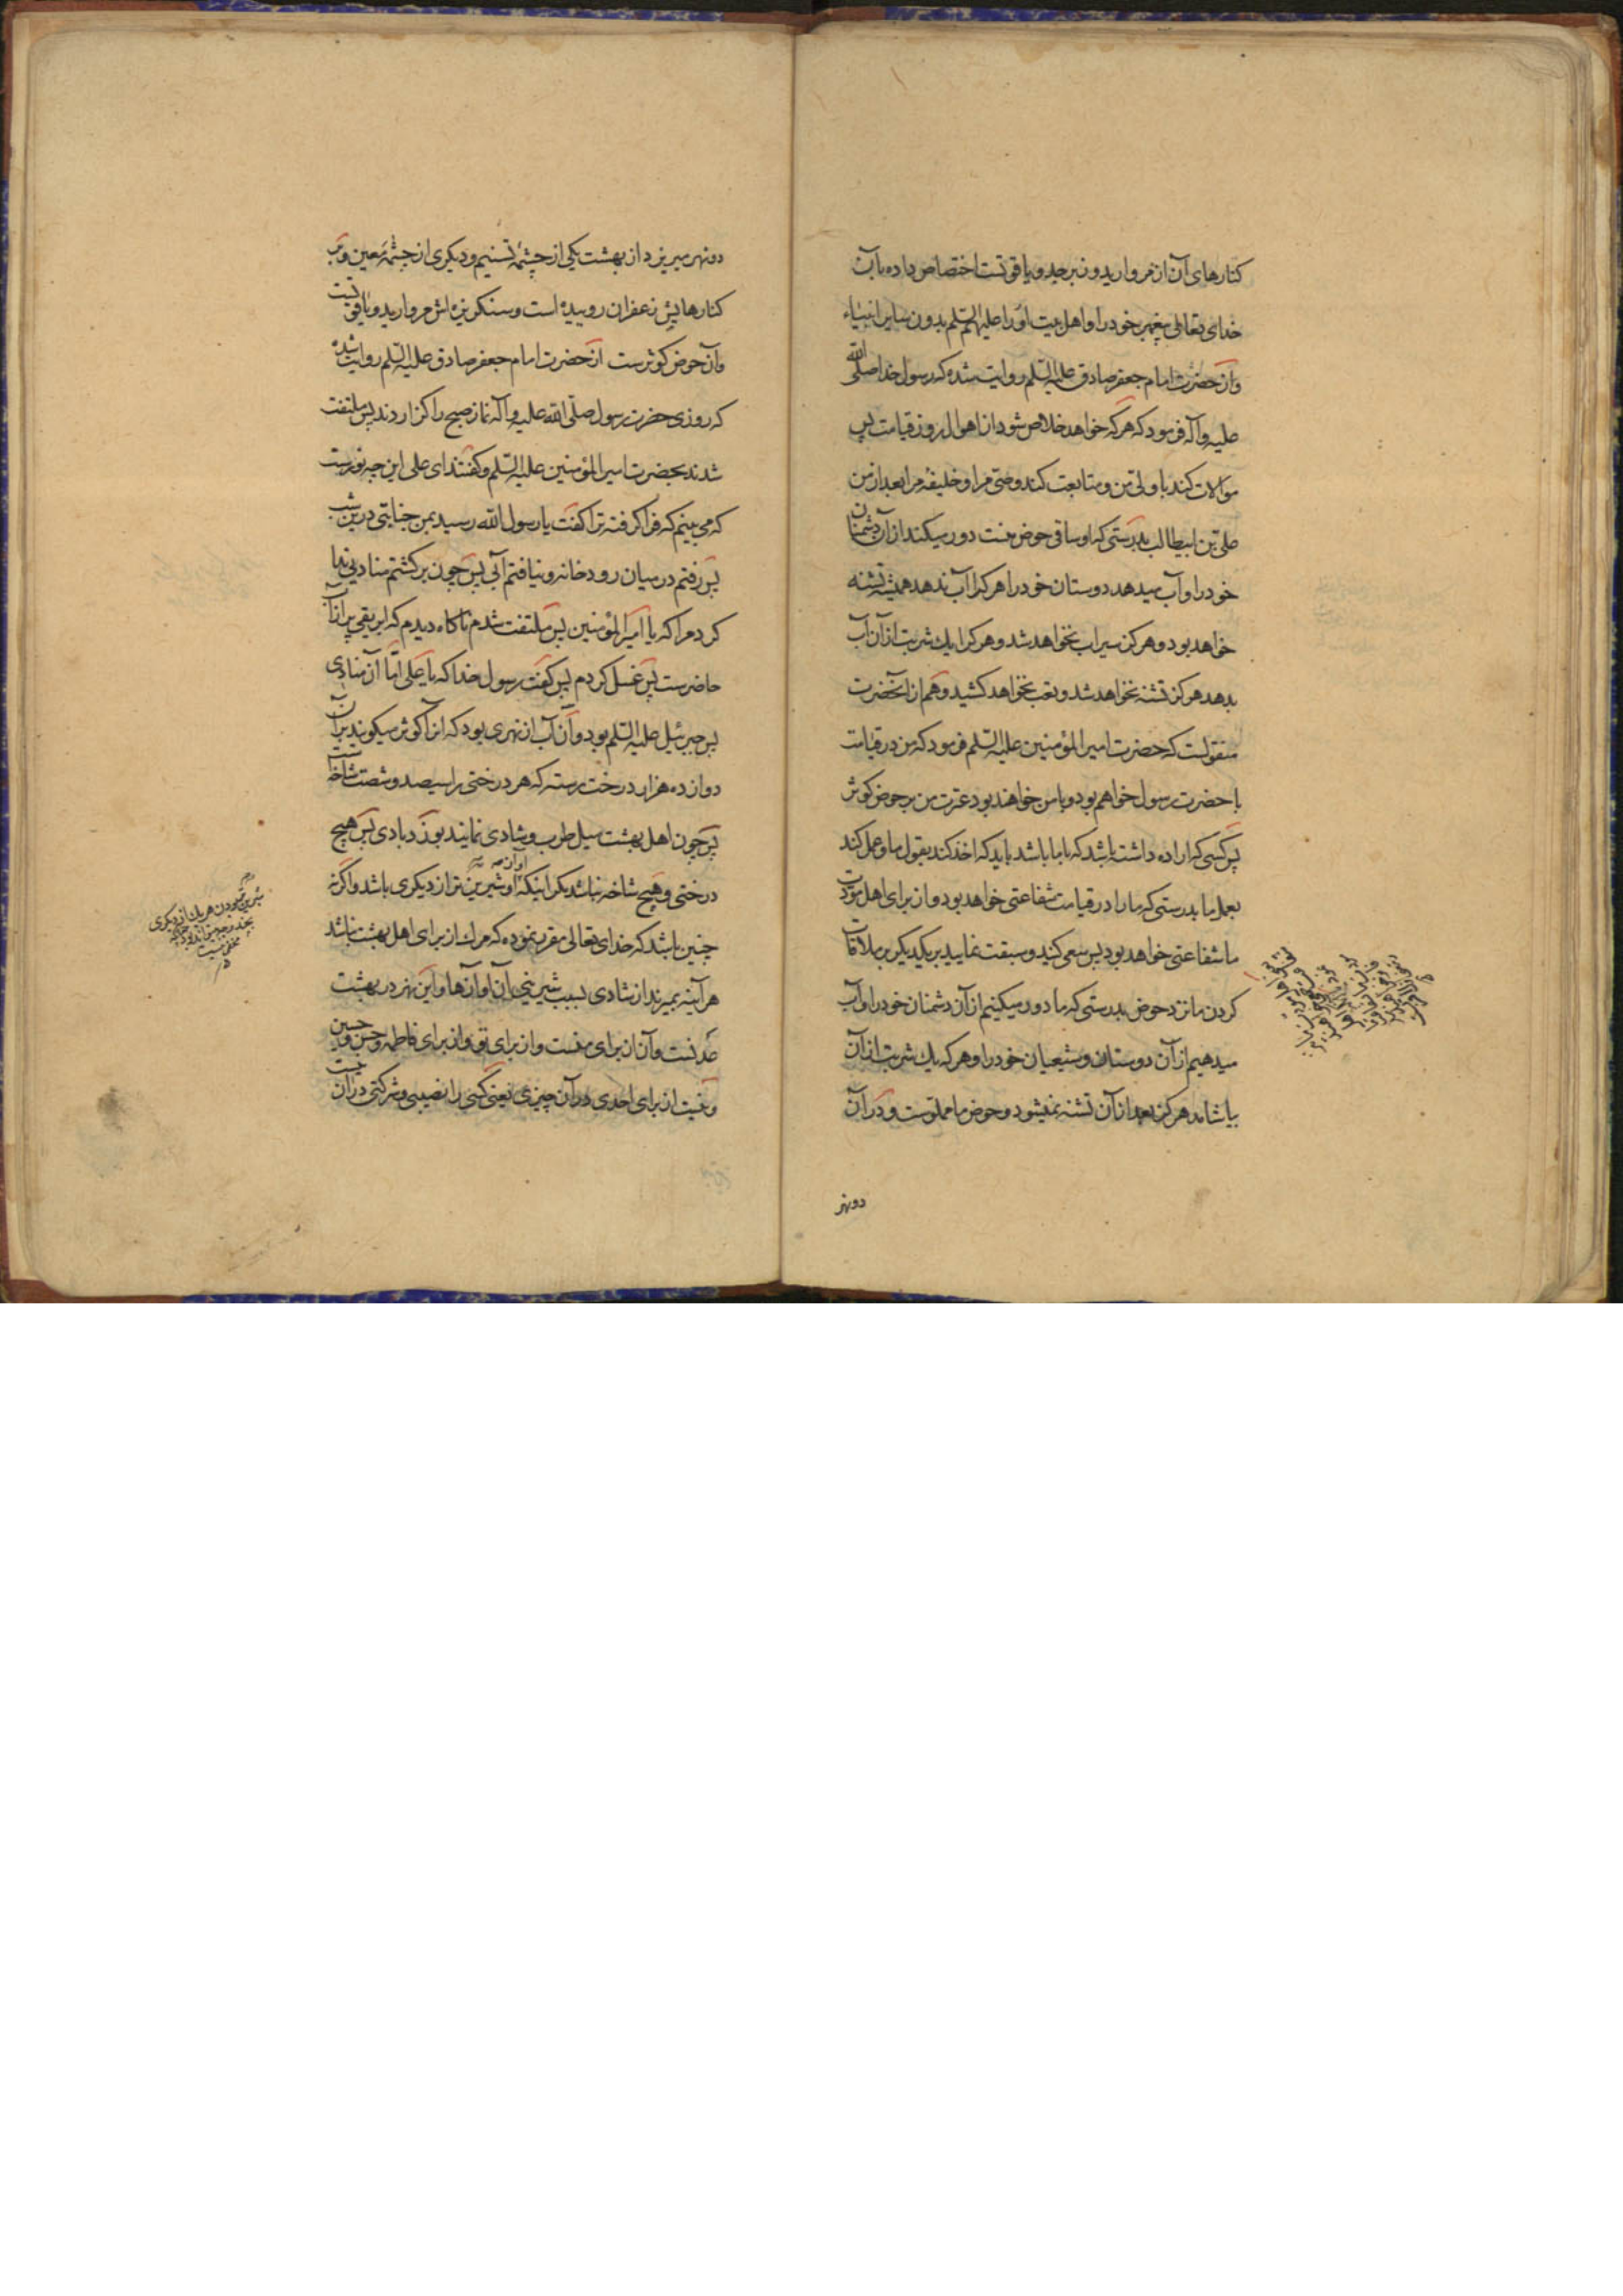 کنارهای آن از مروارید و زبرجد و یاقوتست اختصاص داده بآن
خدای تعالی پیغمبر خود را و اهل بیت او را علیهم السّلم بدون سایر انبیاء
و از حضرت امام جعفر صادق علیه السّلم روایت شده که رسول خدا صلّی الله
علیه و آله فرمود که هر که خواهد خلاص شود از اهوال روز قیامت پس
موالات کند با ولیّ من و متابعت کند وصیّ مرا و خلیفهٔ مرا بعد از من
علیّ بن ابیطالب بدرستی که او ساقی حوض منست دور میکند از آن دشمنان
خود را و آب میدهد دوستان خود را هر کرا آب ندهد همیشه تشنه
خواهد بود و هرکز سیراب نخواهد شد و هر کرا یك شربت از آن آب
بدهد هرکز تشنه نخواهد شد و تعب نخواهد کشید و هم از آنحضرت
منقولست که حضرت امیر المؤمنین علیه السّلم فرمود که من در قیامت
با حضرت رسول خواهم بود و با من خواهند بود عترت من بر حوض کوثر
پس کسی که اراده داشته باشد که با ما باشد باید که اخذ کند بقول ما و عمل کند
بعمل ما بدرستی که ما را در قیامت شفاعتی خواهد بود و از برای اهل مودّت
ما شفاعتی خواهد بود پس سعی کنید و سبقت نمایید بر یکدیکر بر ملاقات
کردن ما نزد حوض بدرستی که ما دور میکنیم از آن دشمنان خود را و آب
میدهیم از آن دوستان و شیعیان خود را و هر که یك شربت از آن
بیاشامد هرکز بعد از آن تشنه نمیشود و حوض ما مملوست و در آن
دو نهر
دو نهر میریزد از بهشت یکی از چشمهٔ تسنیم و دیکری از چشمهٔ معین و بر
کنارهایش زعفران روییده است و سنکریزه اش مروارید و یاقوتست
و آن حوض کوثرست از حضرت امام جعفر صادق علیه السّلم روایت شده
که روزی حضرت رسول صلّی الله علیه و آله نماز صبح را کزاردند پس ملتفت
شدند بحضرت امیر المؤمنین علیه السّلم و کفتند ای علی این چه نورست
که می بینم که فرا کرفته ترا کفت یا رسول الله رسید بمن جنابتی درین شب
پس رفتم در میان رودخانه و نیافتم آبی پس چون برکشتم منادیی ندا
کرد مرا که یا امیر المؤمنین پس ملتفت شدم ناکاه دیدم که ابریقی پر از آب
حاضرست پس غسل کردم پس کفت رسول خدا که یا علی امّا آن منادی
پس جبرئیل علیه السّلم بود و آن آب از نهری بود که آنرا کوثر میکویند بر آن
دوازده هزار درخت رسته که هر درختی را سیصد و شصت شاخه است
پس چون اهل بهشت میل طرب و شادی نمایند بوزد بادی پس هیچ
درختی و هیچ شاخه نباشد مکر اینکه آواز او شیرین تر از دیکری باشد و اکر نه
چنین باشد که خدای تعالی مقرر نموده که مرك از برای اهل بهشت نباشد
هر آینه بمیرند از شادی بسبب شیرینی آن آوازها و این نهر در بهشت
عدنست و آن از برای منست و از برای تو و از برای فاطمه و حسن و حسین
و نیست از برای احدی در آن چیزی یعنی کسی را نصیبی و شرکتی در آن نیست
شیرین تر بودن هر یك از دیکری